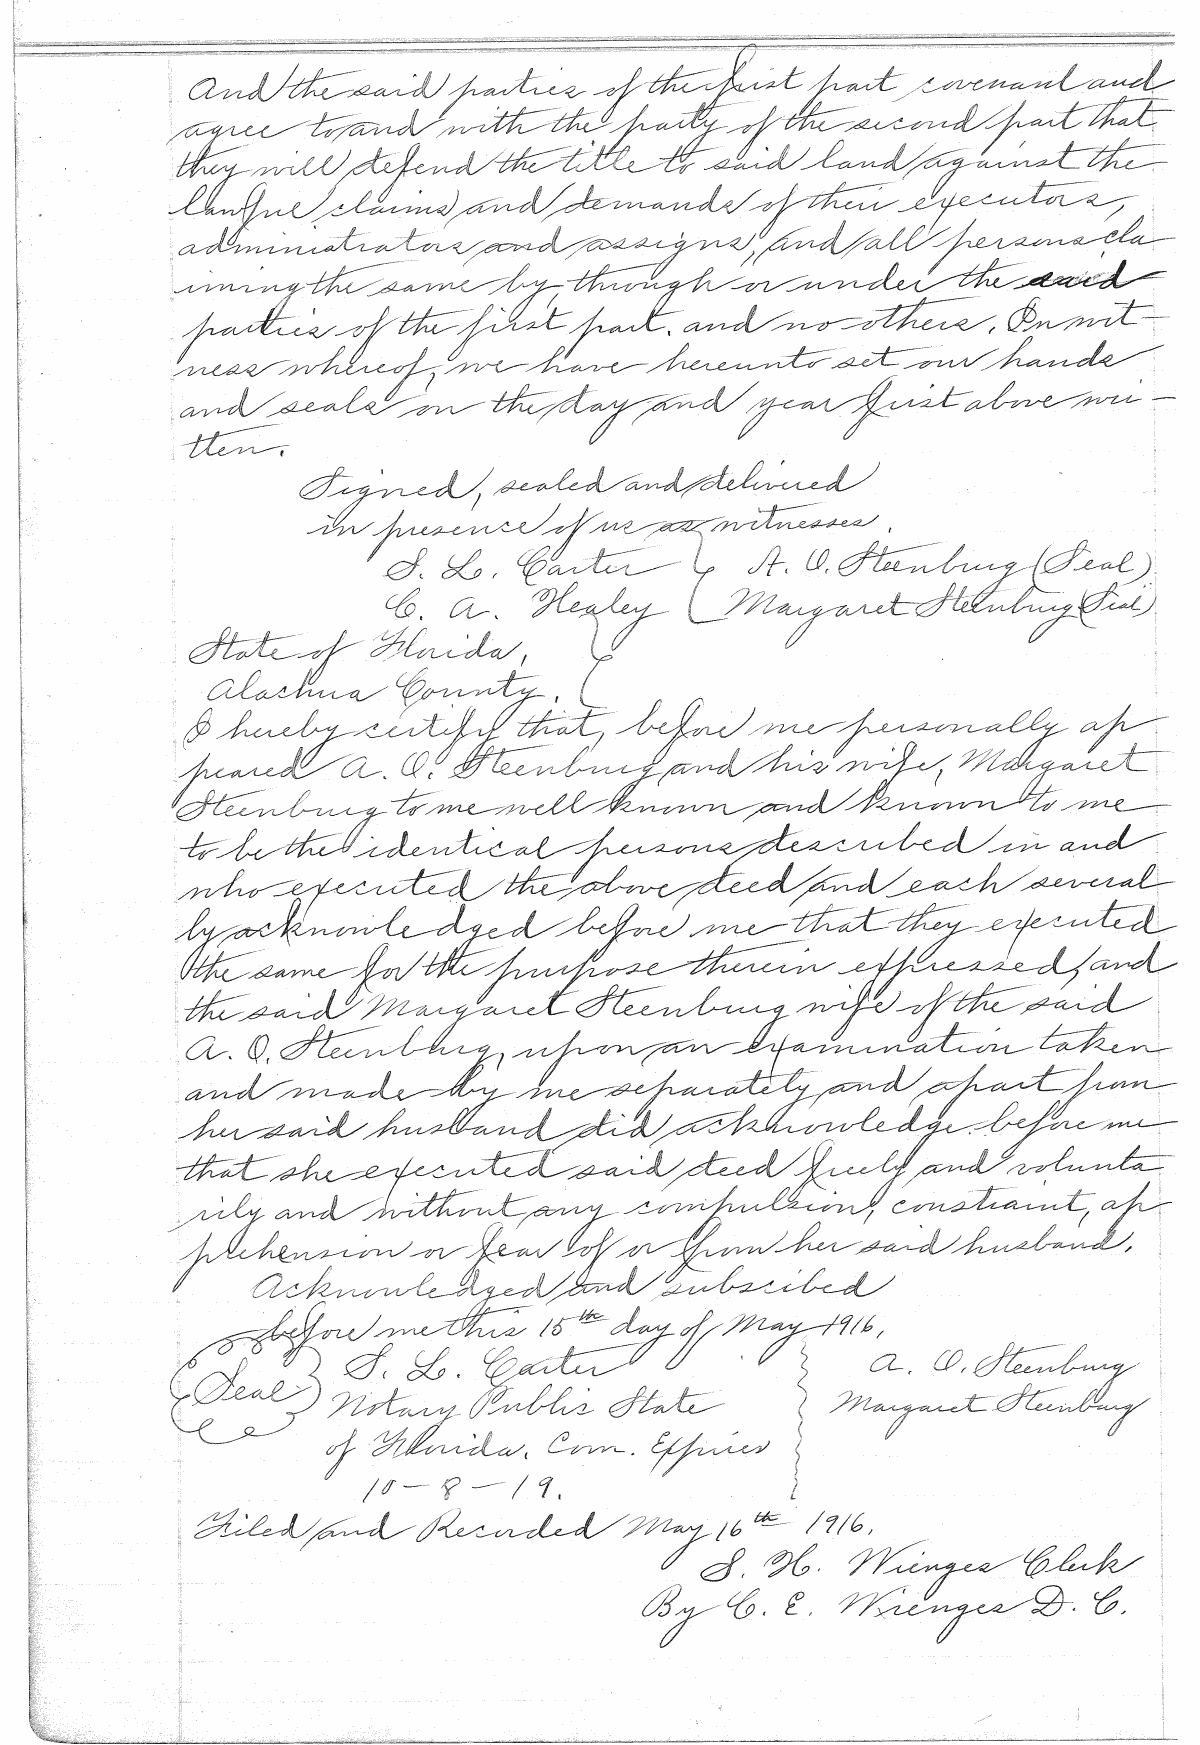 And the said parties of the first part covenant and
agree to and with the party of the second part that
they will defend the title to said land against the
lawful claims and demands of their executors,
administrators and assigns, and all persons cla
iming the same by, through or under the said
parties of the first part, and no others. In wit-
ness whereof, we have hereunto set our hands
and seals on the day and year first above wri-
tten.
Signed, sealed and delivered
in presence of us as witnesses.
S. L. Carter A. O. Steenburg (Seal)
C. A. Healey Margaret Steenburg (Seal)
State of Florida,
Alachua County.
I hereby certify that, before me personally ap
peared A. O. Steenburg and his wife, Margaret
Steenburg to me well known and known to me
to be the identical persons described in and
who executed the above deed and each several
ly acknowledged before me that they executed
the same for the purpose therein expressed, and
the said Margaret Steenburg wife of the said
A. O. Steenburg, upon an examination taken
and made by me separately and apart from
her said husband did acknowledge before me
that she executed said deed freely and volunta
rily and without any compulsion, constraint, ap
prehension or fear of or from her said husband.
Acknowledged and subscibed
before me this 15th day of May 1916.
S. L. Carter A. O. Steenburg
(Seal) Notary Public State Margaret Steenburg
of Florida. Com. Expires
10-8-19.
Filed and Recorded May 16th 1916.
S. H. Wienges Clerk
By C. E. Wienges D. C.